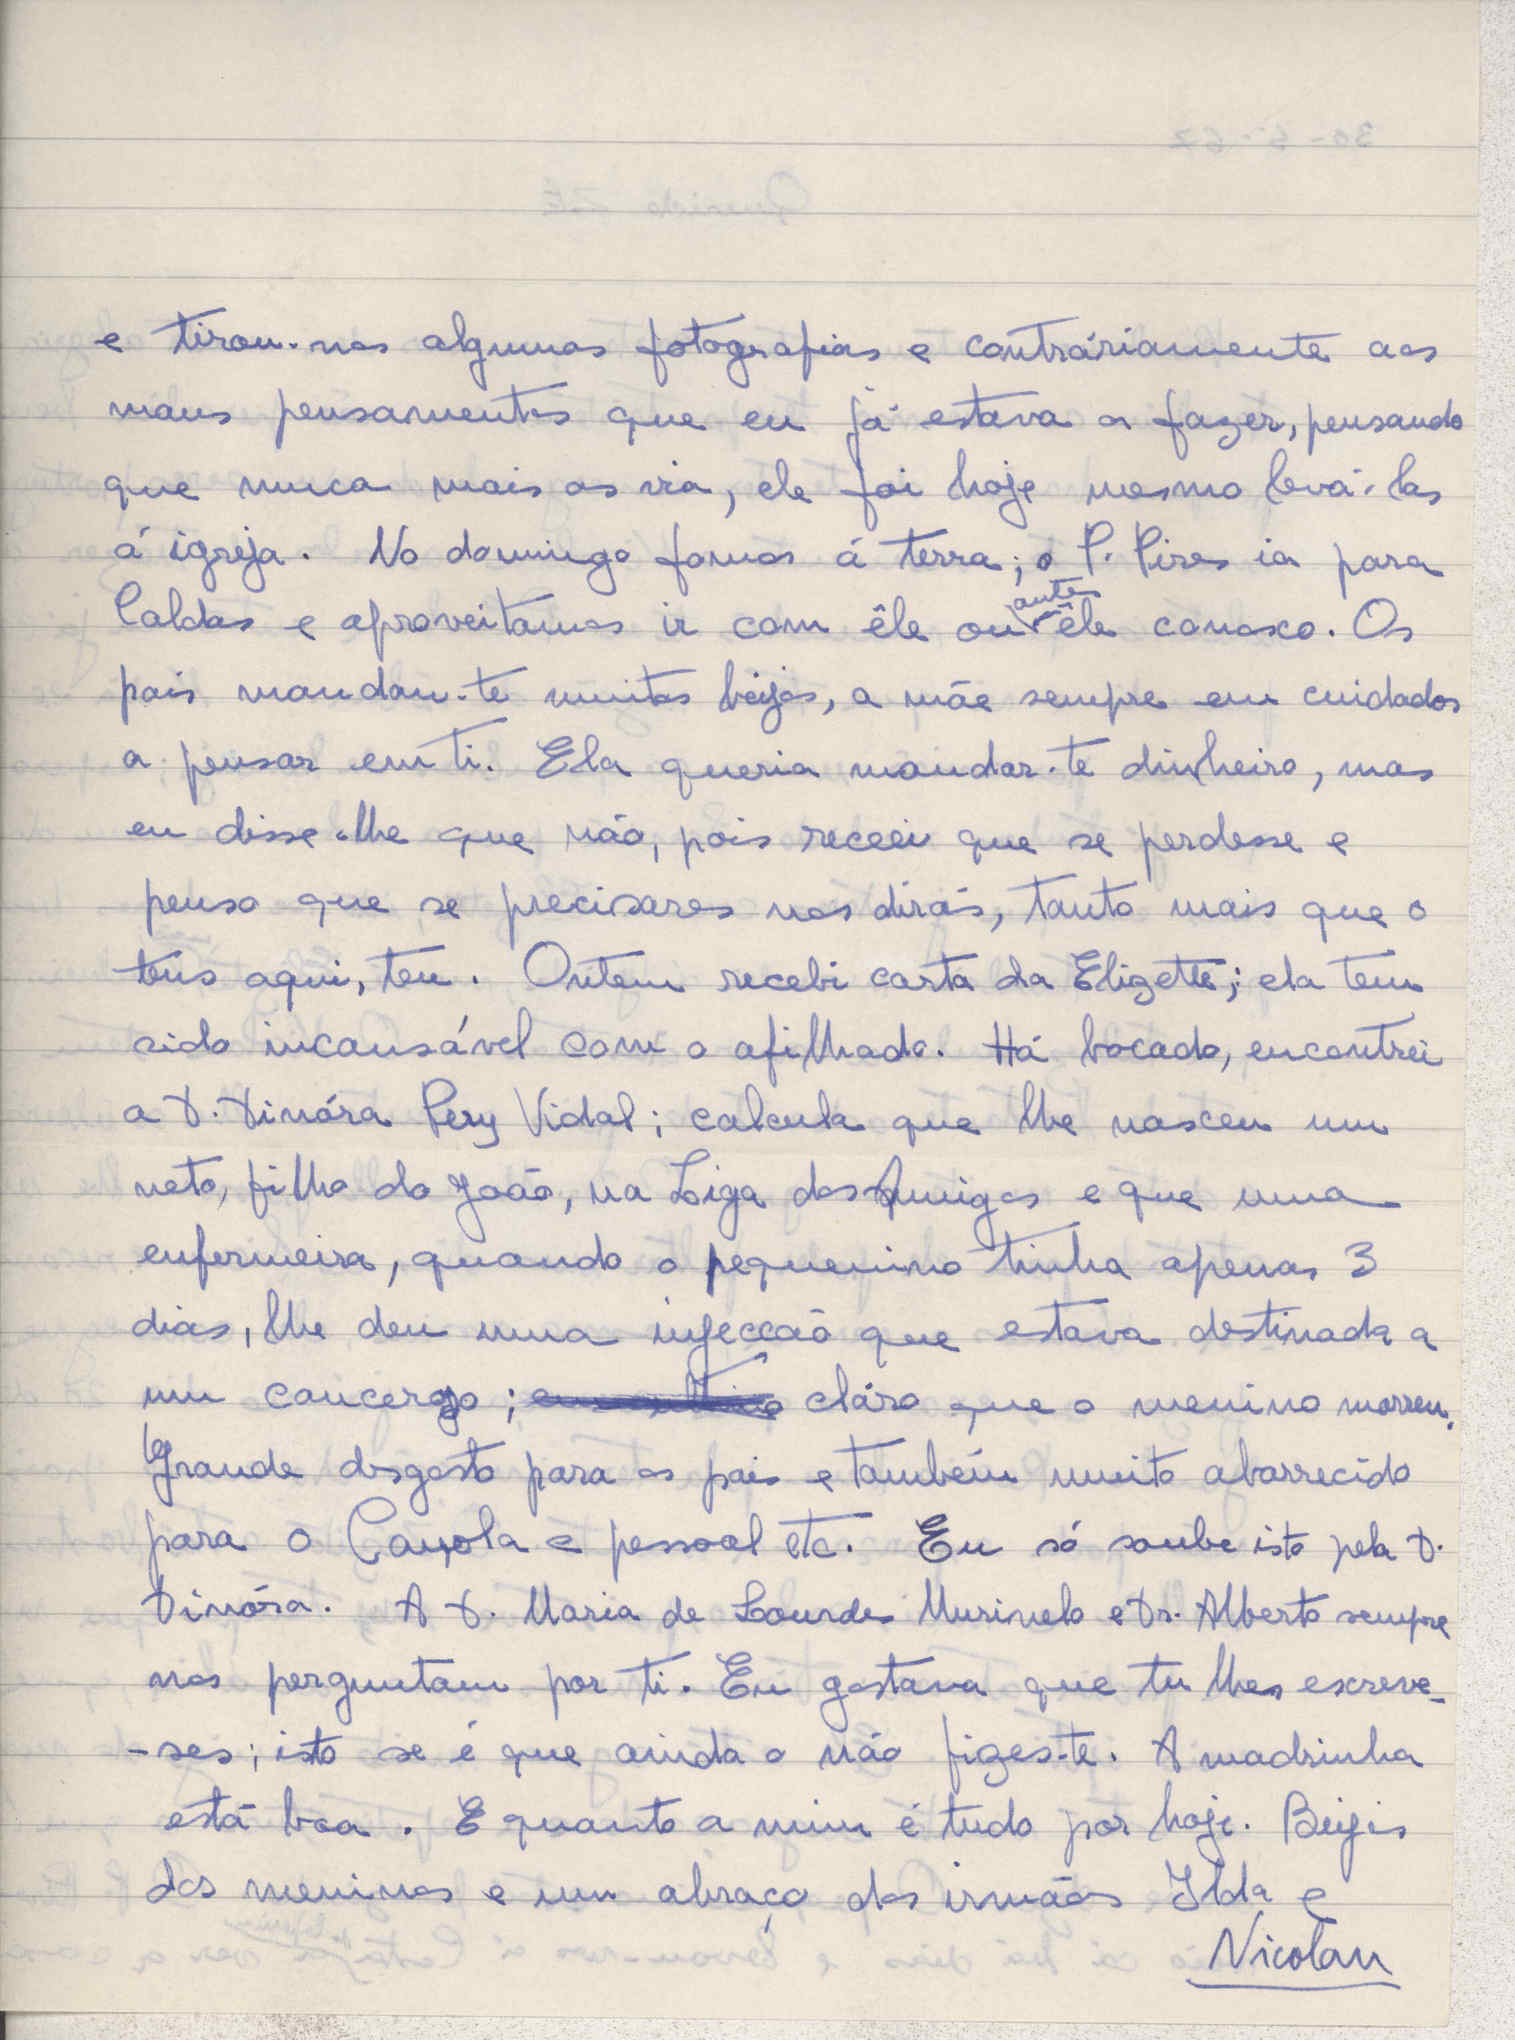 e tirou-nos algumas fotografias e contráriamente aos
maus pensamentos que eu já estava a fazer, pensando
que nunca mais as via, ele foi hoje mesmo levá-las
á igreja. No domingo fomos á terra; o P. Pires ia para
Caldas e aproveitamos ir com êle ou antes êle conosco. Os
pais mandam-te muitos beijos, a mãe sempre em cuidados
a pensar em ti. Ela queria mandar-te dinheiro, mas
eu disse-lhe que não, pois receei que se perdesse e
penso que se precisares nos dirás, tanto mais que o
tens aqui, teu. Ontem recebi carta da Elizette; ela tem
sido incansável com o afilhado. Há bocado, encontrei
a D. Dinóra Pery Vidal; calcula que lhe nasceu um
neto, filho do João, na Liga dos Amigos e que uma
enfermeira, quando o pequenino tinha apenas 3
dias, lhe deu uma injecção que estava destinada a
um canceroso; cláro que o menino morreu.
Grande desgosto para os pais e também muito aborrecido
para o Cayola e pessoal etc. Eu só soube isto pela D.
Dinóra. A D. Maria de Lourdes Murinelo e Dr. Alberto sempre
nos perguntam por ti. Eu gostava que tu lhes escreve-
-ses; isto se é que ainda o não fizes-te. A madrinha
está boa. E quanto a mim é tudo por hoje. Beijos
dos meninos e um abraço dos irmãos Ilda e
Nicolau